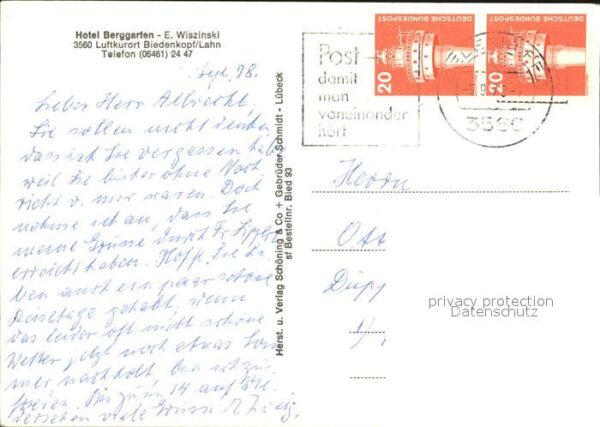 Hotel Berggarten - E. Wiszinski
3560 Luftkurort Biedenkopf/Lahn
Telefon (06461) 24 47
Sept. 78.
Lieber Herr Albrecht,
Sie sollen nicht denken
dass ich Sie vergessen habe
weil Sie bisher ohne Nach
richt v. mir waren. Doch
nehme ich an, dass Sie
meine Grüsse durch Fr.
erreicht haben. Hoffe, Sie ha
ben auch ein paar schöne
Reisetage gehabt, wenn
das leider oft nicht schöne
Wetter jetzt noch etwas Som
mer nachholt.
Bis zum 14. auf Wie
dersehen viele Grüsse
Herst. u. Verlag Schöning & Co + Gebrüder Schmidt - Lübeck
st Bestellnr. Bied 93
Post
damit
man
voneinander
hört
3560
DEUTSCHE BUNDESPOST
20
DEUTSCHE BUNDESPOST
20
Herrn
Ott
privacy protection
Datenschutz